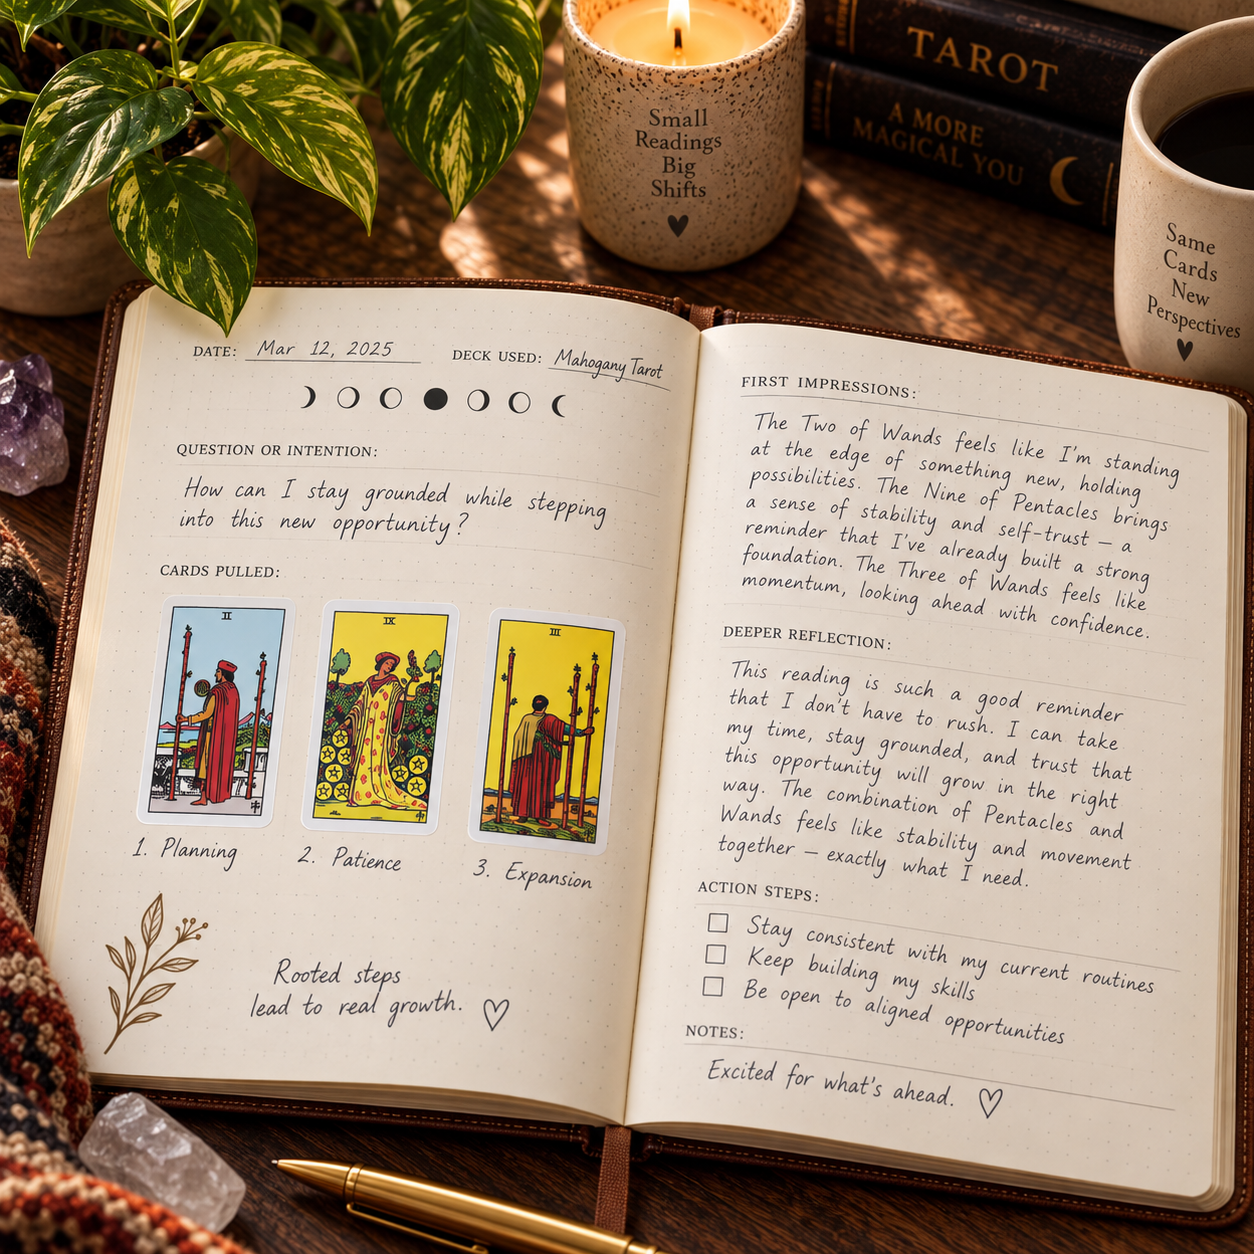 Small
Readings
Big
Shifts
TAROT
A MORE
MAGICAL YOU
Same
Cards
New
Perspectives
DATE: Mar 12, 2025 DECK USED: Mahogany Tarot
QUESTION OR INTENTION:
How can I stay grounded while stepping
into this new opportunity?
CARDS PULLED:
II
IX
III
1. Planning
2. Patience
3. Expansion
Rooted steps
lead to real growth.
FIRST IMPRESSIONS:
The Two of Wands feels like I'm standing
at the edge of something new, holding
possibilities. The Nine of Pentacles brings
a sense of stability and self-trust — a
reminder that I've already built a strong
foundation. The Three of Wands feels like
momentum, looking ahead with confidence.
DEEPER REFLECTION:
This reading is such a good reminder
that I don't have to rush. I can take
my time, stay grounded, and trust that
this opportunity will grow in the right
way. The combination of Pentacles and
Wands feels like stability and movement
together — exactly what I need.
ACTION STEPS:
Stay consistent with my current routines
Keep building my skills
Be open to aligned opportunities
NOTES:
Excited for what's ahead.